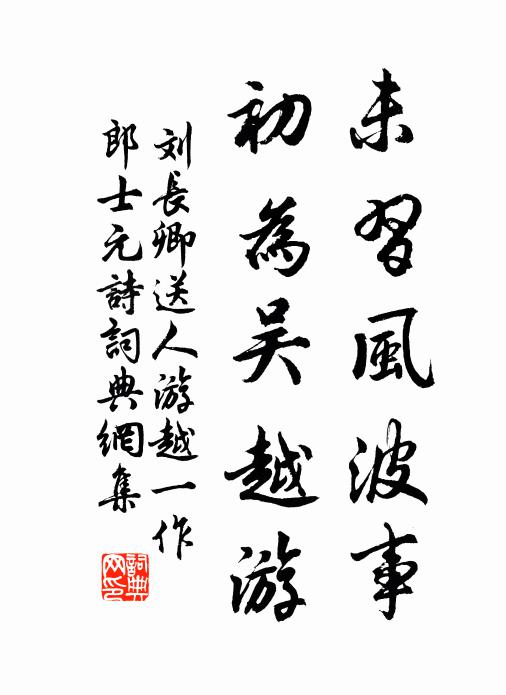 未習風波事
初為吴越游
刘長卿送人游越一作
郎士元詩詞典網集
詞典网印